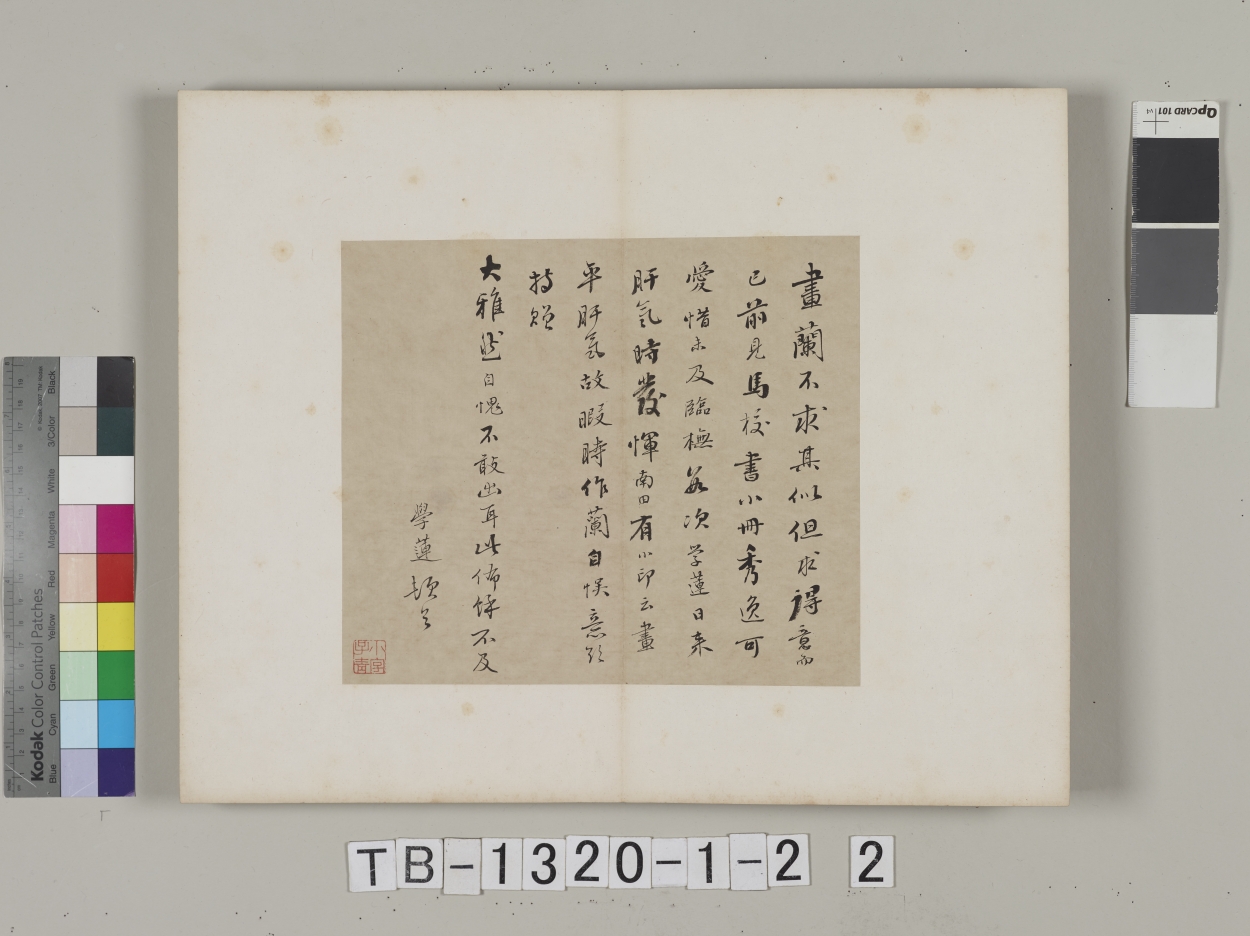 畫蘭不求其似但求得意而
已前見馬校書小冊秀逸可
愛惜未及臨橅數次学蓮日來
肝氣時發惲南田有小印云畫
平肝氣故暇時作蘭自悮意欲
持贈
大雅 自愧不敢出耳此佈 不及
學蓮頓首
TB-1320-1-2 2
QpCARD 101 v4
Kodak Color Control Patches
Blue Cyan Green Yellow Red Magenta White 3/Color Black